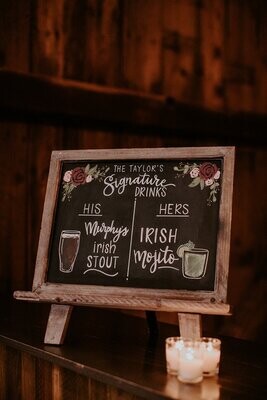 THE TAYLOR'S
Signature
DRINKS
HIS
Murphy's
irish
STOUT
HERS
IRISH
Mojito